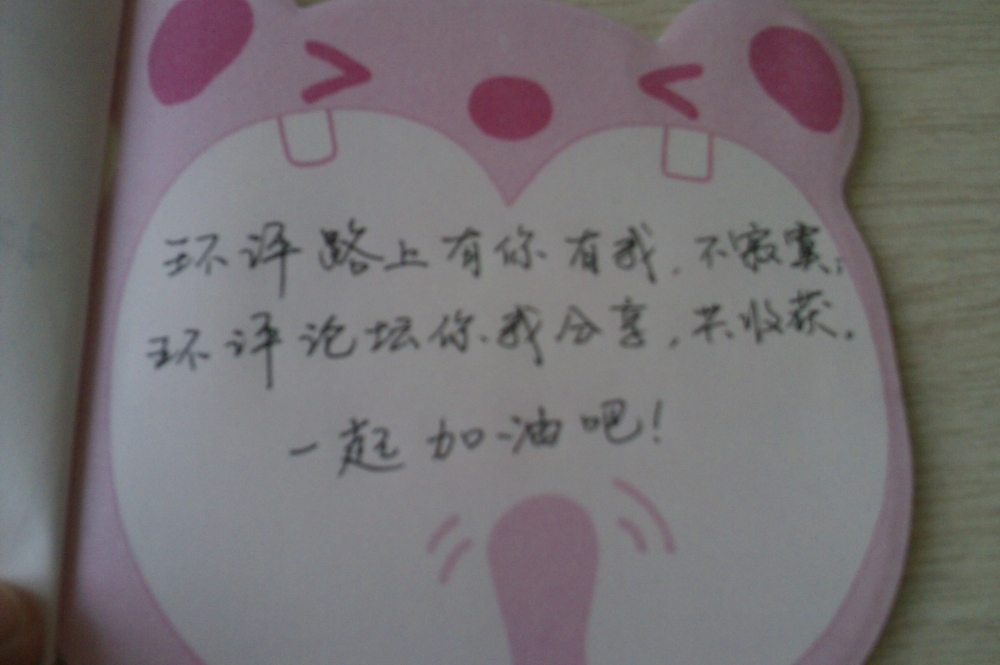 环评路上有你有我，不寂寞；
环评论坛你我分享，共收获。
一起加油吧！